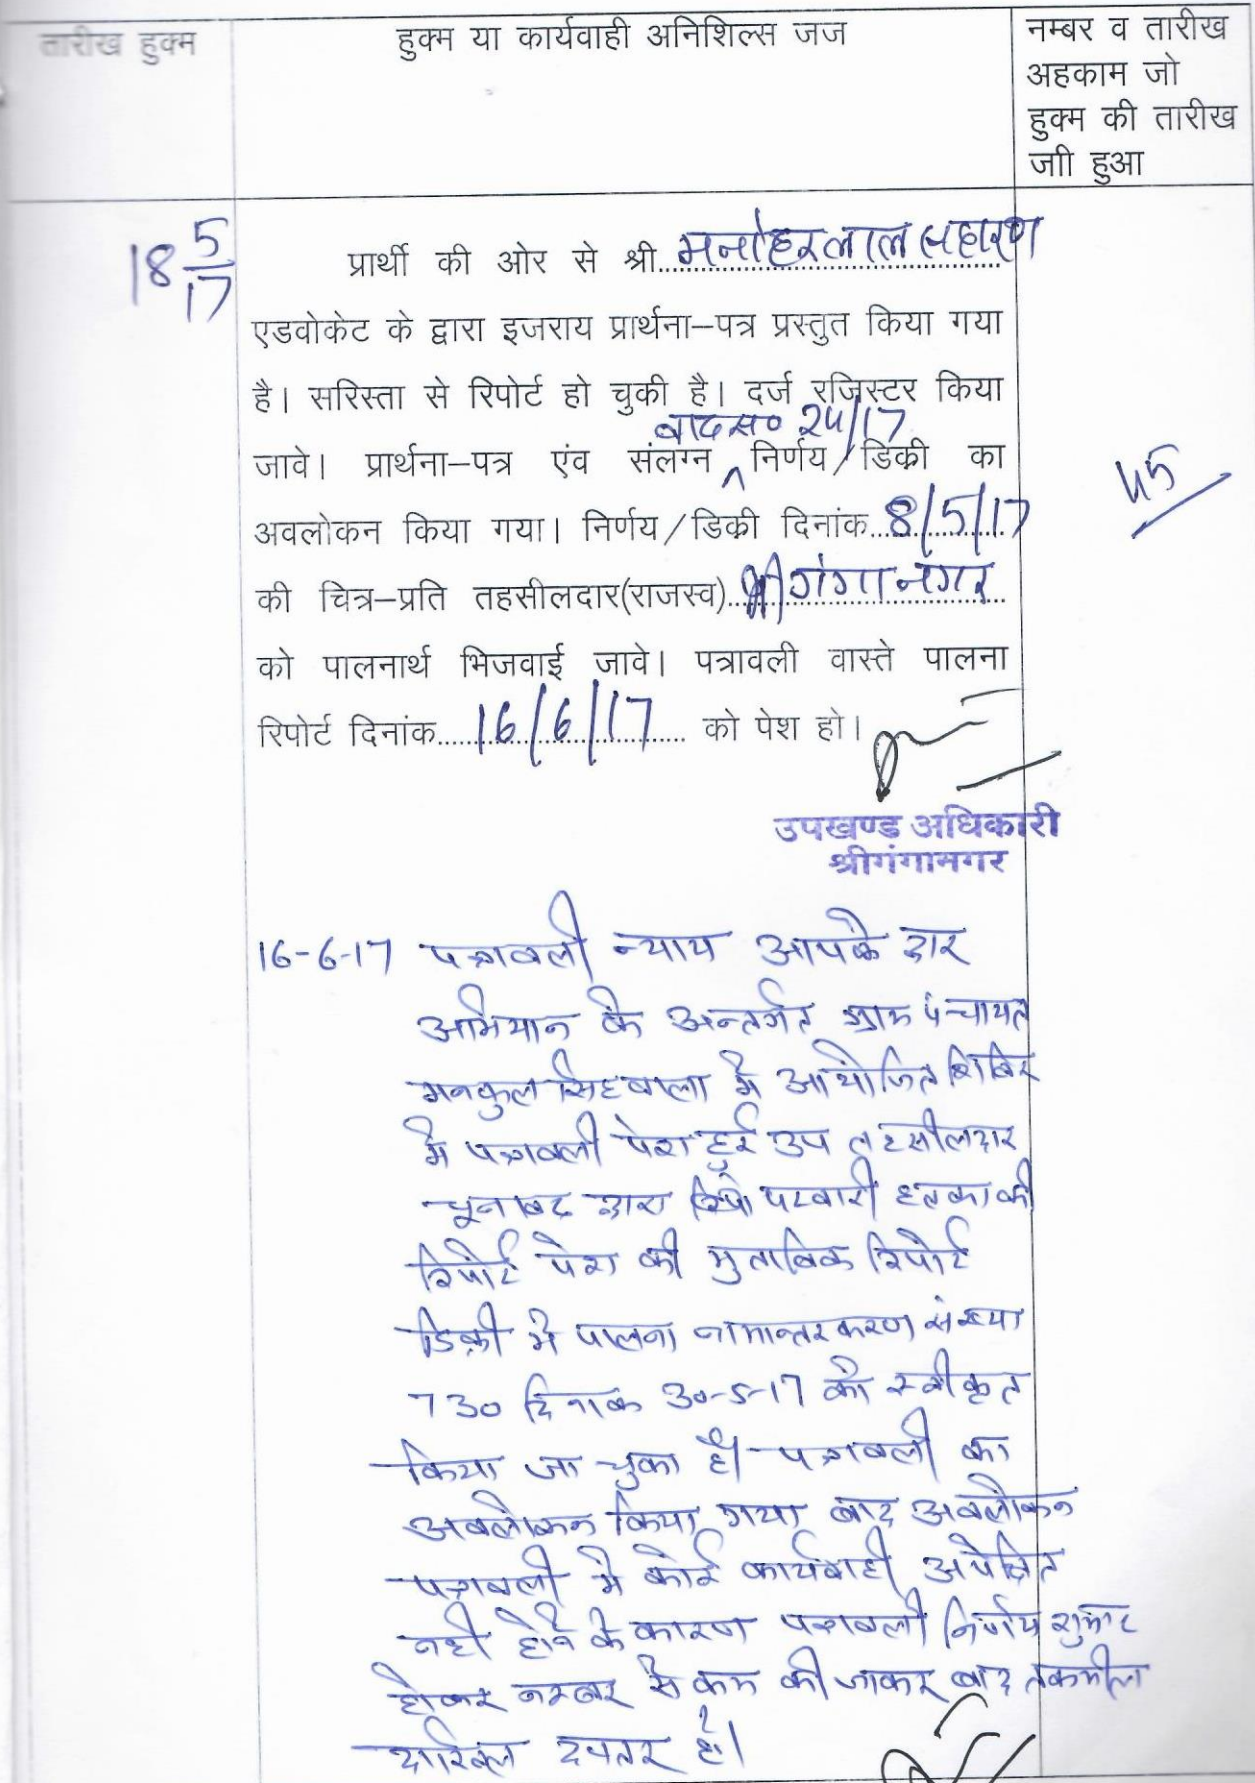 तारीख हुक्म
हुक्म या कार्यवाही अनिशिल्स जज
नम्बर व तारीख
अहकाम जो
हुक्म की तारीख
जाी हुआ
18 5/17
प्रार्थी की ओर से श्री..मनोहरलाल सहारण
एडवोकेट के द्वारा इजराय प्रार्थना–पत्र प्रस्तुत किया गया
है। सरिस्ता से रिपोर्ट हो चुकी है। दर्ज रजिस्टर किया
वाद स० 24/17
जावे। प्रार्थना–पत्र एंव संलग्न ^ निर्णय/डिक्री का
अवलोकन किया गया। निर्णय/डिक्री दिनांक..8/5/17
45
की चित्र–प्रति तहसीलदार(राजस्व)..श्री गंगानगर
को पालनार्थ भिजवाई जावे। पत्रावली वास्ते पालना
रिपोर्ट दिनांक....16/6/17.... को पेश हो।
उपखण्ड अधिकारी
श्रीगंगानगर
16-6-17 पत्रावली न्याय आपके द्वार
अभियान के अन्तर्गत ग्राम पंचायत
मनफुल सिंहवाला में आयोजित शिविर
में पत्रावली पेश हुई उप तहसीलदार
चूनावढ द्वारा पटवारी हलका की
रिपोर्ट पेश की मुताबिक रिपोर्ट
डिक्री में पालना नामान्तरकरण संख्या
730 दिनांक 30-5-17 को स्वीकृत
किया जा चुका है। पत्रावली का
अवलोकन किया गया बाद अवलोकन
पत्रावली में कोई कार्यवाही अपेक्षित
नही होने के कारण पत्रावली निर्णय शुमार
होकर नम्बर से कम की जाकर बाद तकमील
दाखिल दफ्तर हो।